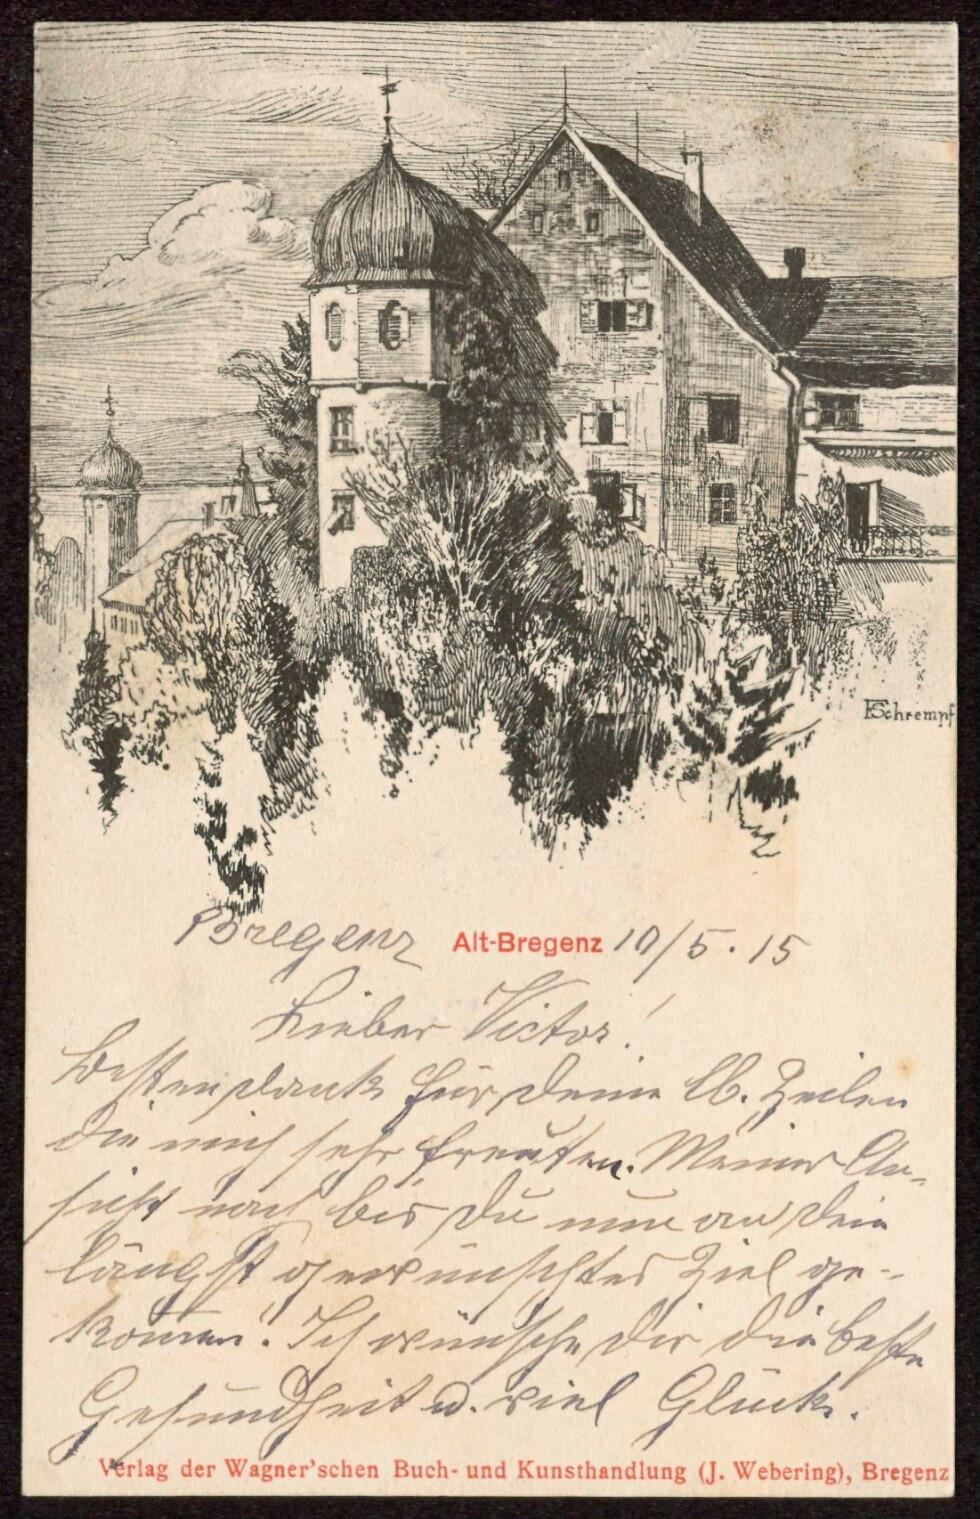 FSchrempf
Bregenz Alt-Bregenz 10/5. 15
Lieber Victor!
Besten Dank für Deine lb. Zeilen
die mich sehr freuten. Meiner An-
sicht nach bis Du nun an Dein
längst gewünschtes Ziel ge-
komen. Ich wünsche Dir die beste
Gesundheit u. viel Glück.
Verlag der Wagner'schen Buch- und Kunsthandlung (J. Webering), Bregenz